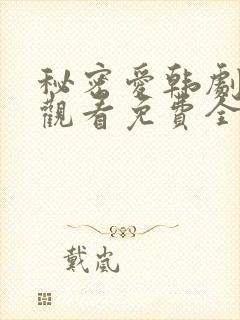 秘密愛韩劇
觀看免費全
戴嵐